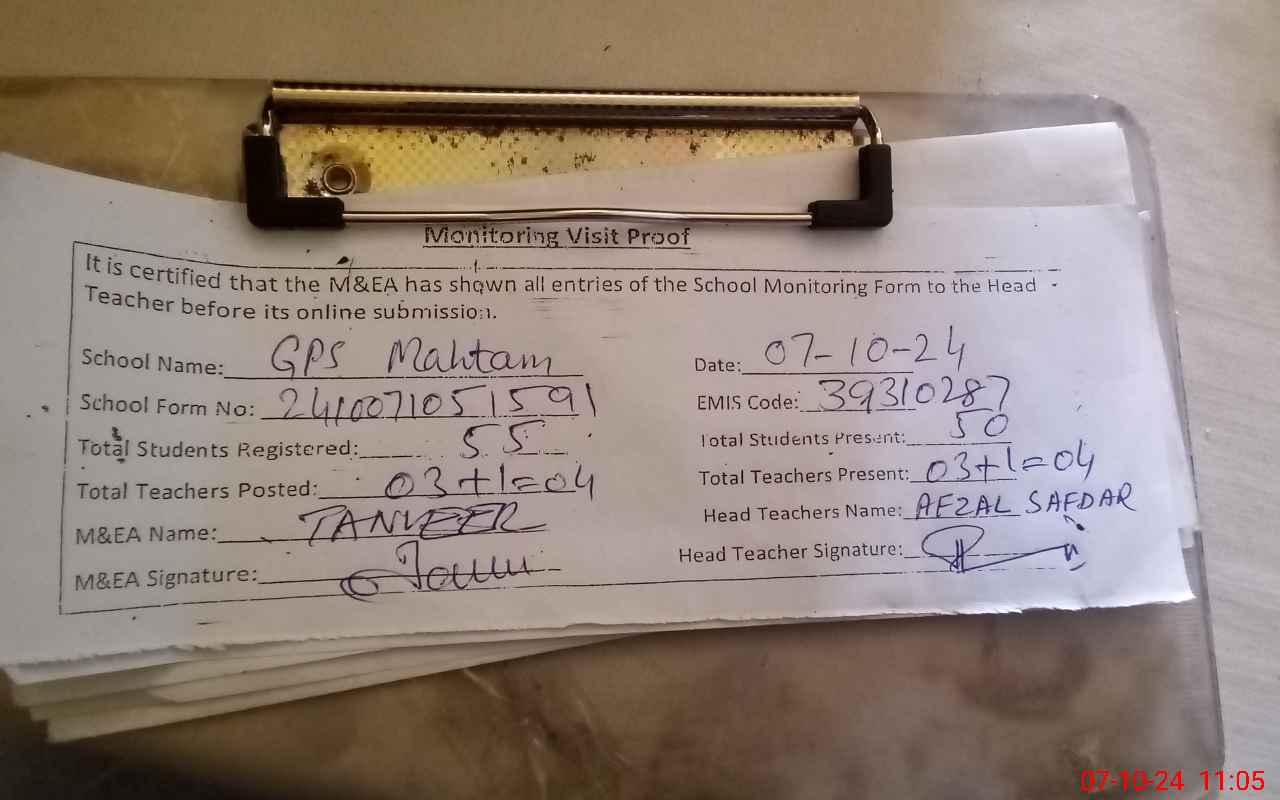 Monitoring Visit Proof
It is certified that the M&EA has shown all entries of the School Monitoring Form to the Head
Teacher before its online submission.
School Name: GPS Mahtam Date: 07-10-24
School Form No: 2410071051591 EMIS Code: 39310287
Total Students Registered: 55 Total Students Present: 50
Total Teachers Posted: 03+1=04 Total Teachers Present: 03+1=04
M&EA Name: TANVEER Head Teachers Name: AFZAL SAFDAR
M&EA Signature: Head Teacher Signature:
07-10-24 11:05